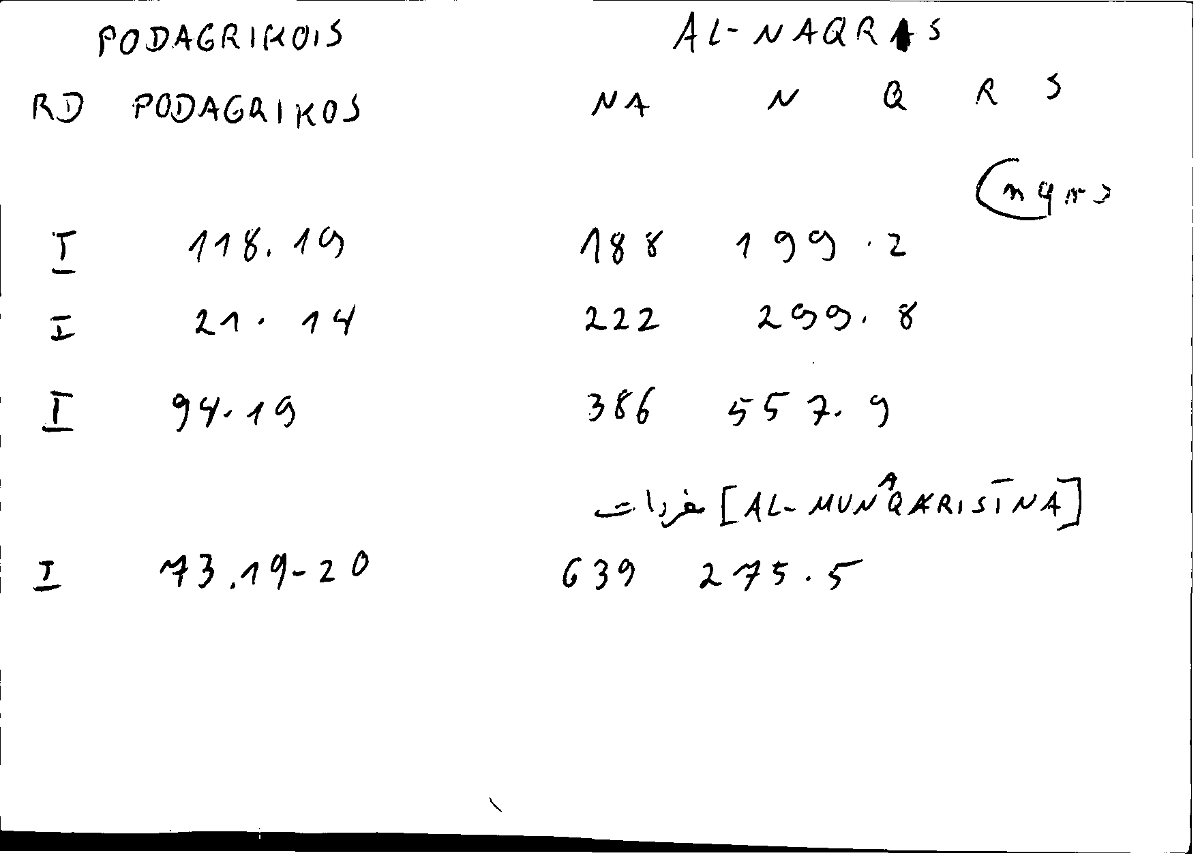 PODAGRIKOIS AL-NAQRAS
RD PODAGRIKOS NA N Q R S
(nqrs
I 118.19 188 199.2
I 21.14 222 299.8
I 94.19 386 557.9
مفردات [AL-MUNAQARISĪNA]
I 73.19-20 639 275.5